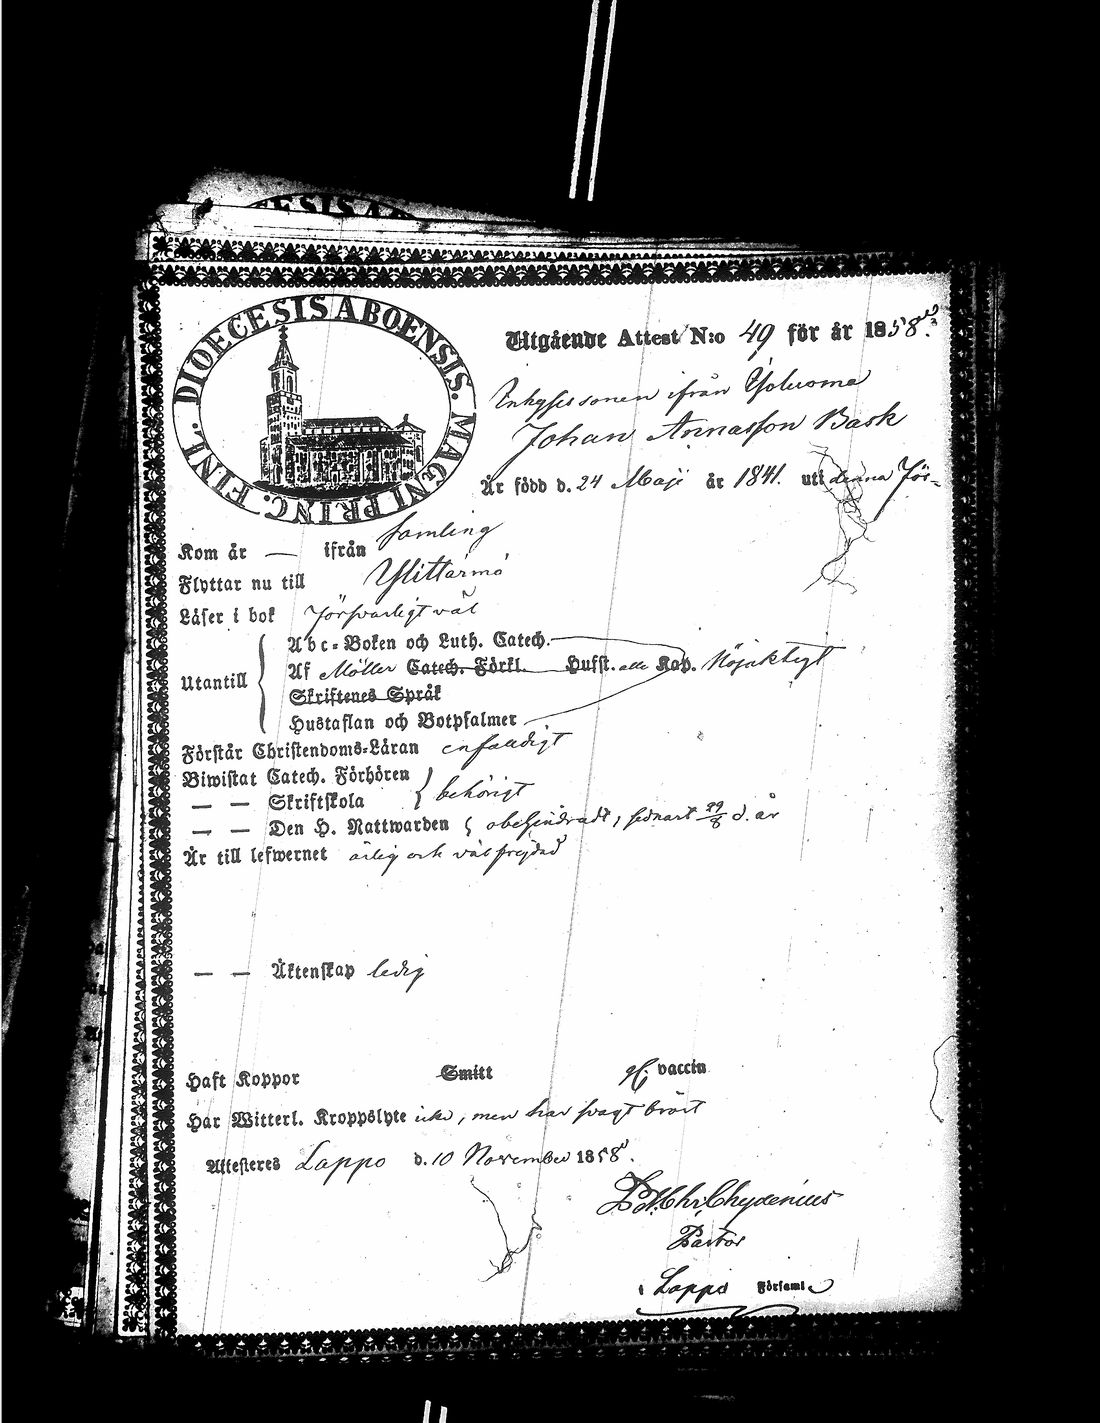 DIOECESIS ABOENSIS. MAGNI PRINC. FINL.
Utgående Attest N:o 49 för år 1858.
Inhysessonen ifrån Yoluoma
Johan Annasson Bask
Är född d. 24 Maji år 1841. uti denna För-
samling
Kom år — ifrån
Flyttar nu till Ylittärmö
Läser i bok försvarligt väl
Utantill
Abc-Boken och Luth. Catech.
Af Möller Catech. Förkl. Husst. alla Kap. Nöjaktigt
Skriftenes Språk
Hustaflan och Botpsalmer
Förstår Christendoms-Läran enfaldigt
Biwistat Catech. Förhören
— — Skriftskola behörigt
— — Den H. Nattwarden obehindradt, sednast 29/8 d. år
Är till lefwernet ärlig och väl frejdad
— — Äktenskap ledig
Haft Koppor Smitt gl. vaccin
Har Witterl. Kroppslyte icke, men har svagt bröst
Attesteres Lappo d. 10 November 1858.
Chr. Chydenius
Pastor
i Lappo Församl.